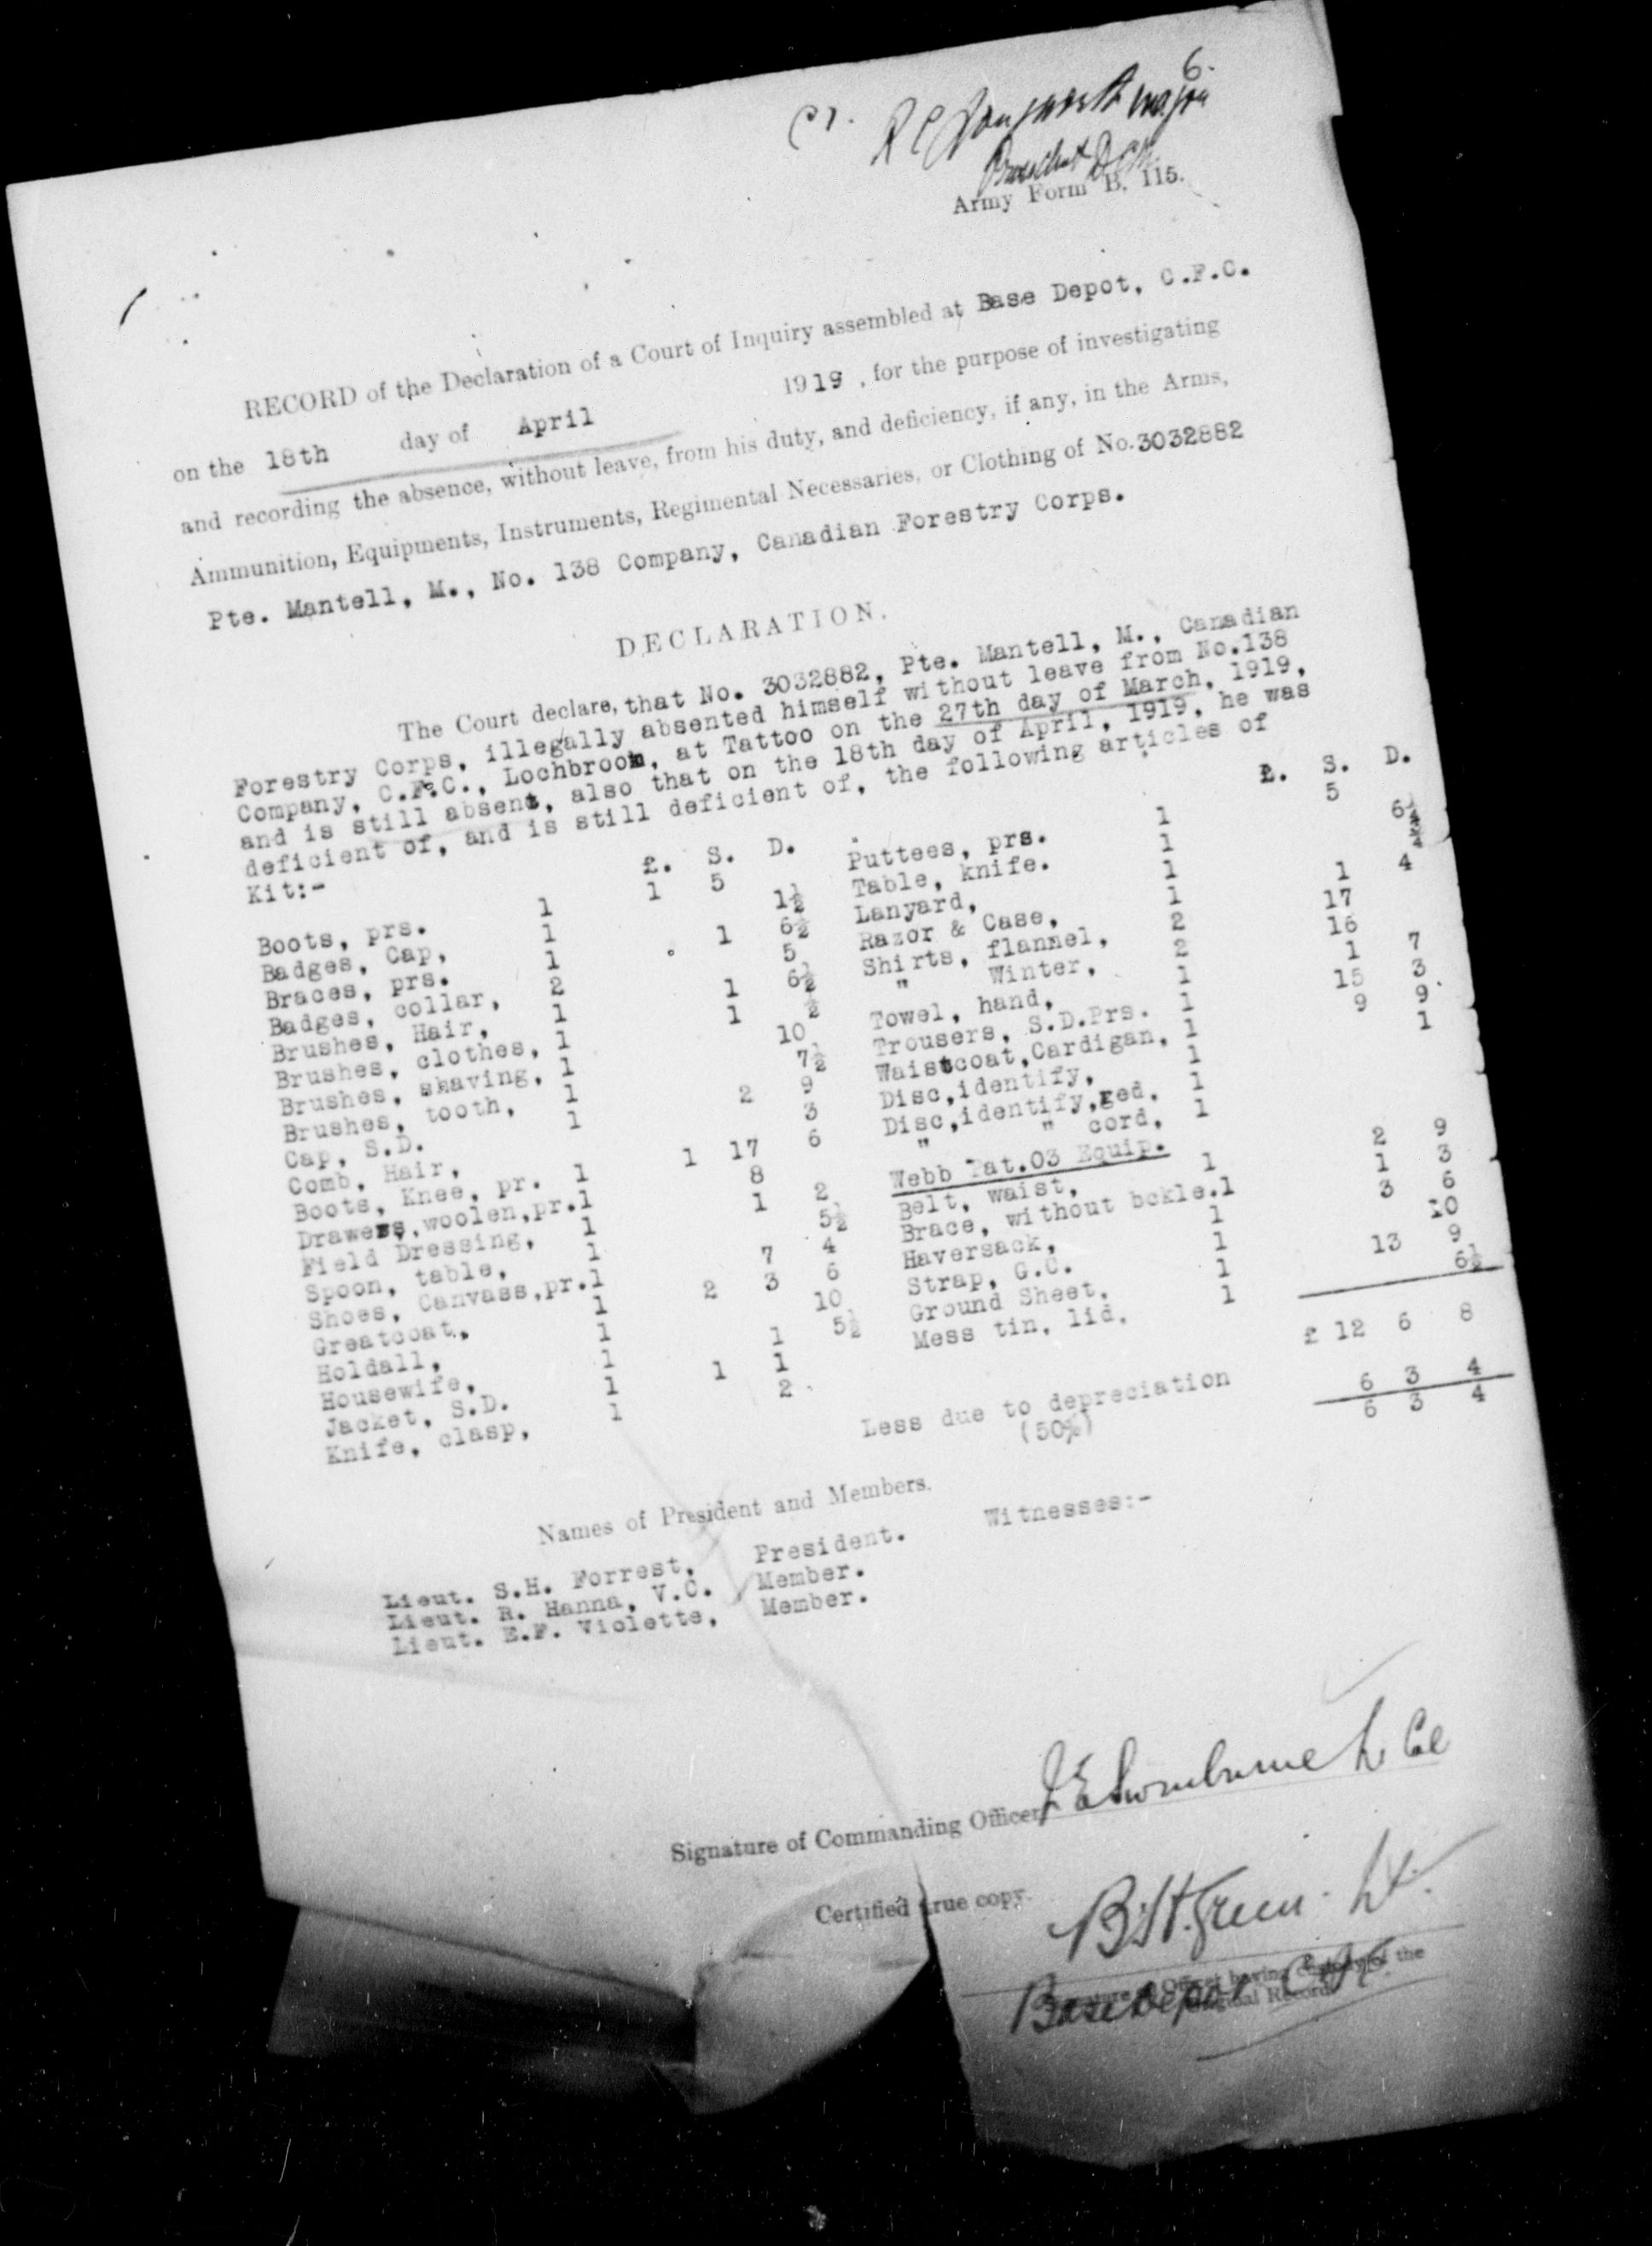 6.
C1.
Major
President D.C.M.
Army Form B. 115.
RECORD of the Declaration of a Court of Inquiry assembled at Base Depot, C.F.C.
on the 18th day of April 1919, for the purpose of investigating
and recording the absence, without leave, from his duty, and deficiency, if any, in the Arms,
Ammunition, Equipments, Instruments, Regimental Necessaries, or Clothing of No. 3032882
Pte. Mantell, M., No. 138 Company, Canadian Forestry Corps.
DECLARATION.
The Court declare, that No. 3032882, Pte. Mantell, M., Canadian
Forestry Corps, illegally absented himself without leave from No.138
Company, C.F.C., Lochbroom, at Tattoo on the 27th day of March, 1919,
and is still absent, also that on the 18th day of April, 1919, he was
deficient of, and is still deficient of, the following articles of
Kit:-
£. S. D.
Boots, prs. 1 1 5
Badges, Cap, 1 1½
Braces, prs. 1 1 6½
Badges, collar, 2 5
Brushes, Hair, 1 1 6½
Brushes, clothes, 1 1 ½
Brushes, shaving, 1 10
Brushes, tooth, 1 7½
Cap, S.D. 1 2 9
Comb, Hair, 1 3
Boots, Knee, pr. 1 1 17 6
Drawers, woolen, pr. 1 8
Field Dressing, 1 1 2
Spoon, table, 1 5½
Shoes, Canvass, pr. 1 7 4
Greatcoat, 1 2 3 6
Holdall, 1 10
Housewife, 1 5½
Jacket, S.D. 1 1 1 1
Knife, clasp, 1 2
£. S. D.
Puttees, prs. 1 5
Table, knife. 1 6½
Lanyard, 1
Razor & Case, 1 1 4
Shirts, flannel, 2 17
" Winter, 2 16
Towel, hand, 1 1 7
Trousers, S.D.Prs. 1 15 3
Waistcoat, Cardigan, 1 9 9
Disc, identify, 1 1
Disc, identify, red, 1
" " cord, 1
Webb Pat.03 Equip.
Belt, waist, 1 2 9
Brace, without bckle. 1 1 3
Haversack, 1 3 6
Strap, G.C. 1 10
Ground Sheet, 1 13 9
Mess tin, lid, 1 6½
£ 12 6 8
Less due to depreciation 6 3 4
(50%) 6 3 4
Names of President and Members.
Witnesses:-
Lieut. S.H. Forrest, President.
Lieut. R. Hanna, V.C. Member.
Lieut. E.F. Violette, Member.
Signature of Commanding Officer J E Swinburne Lt Col
Certified true copy. B. H. Green Lt.
Base Depot C.F.C.
Signature of Officer having custody of the
Original Record